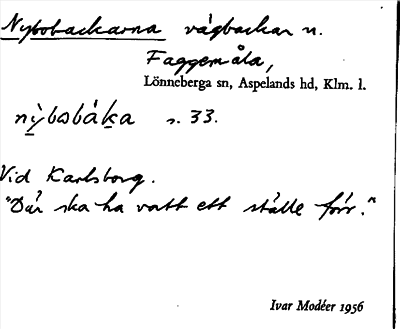 Nybobackarna vägbackar n.
Faggemåla,
Lönneberga sn, Aspelands hd, Klm. l.
nỳbobáka s. 33.
Vid Karlsborg.
"Där ska ha vatt ett ställe förr."
Ivar Modéer 1956